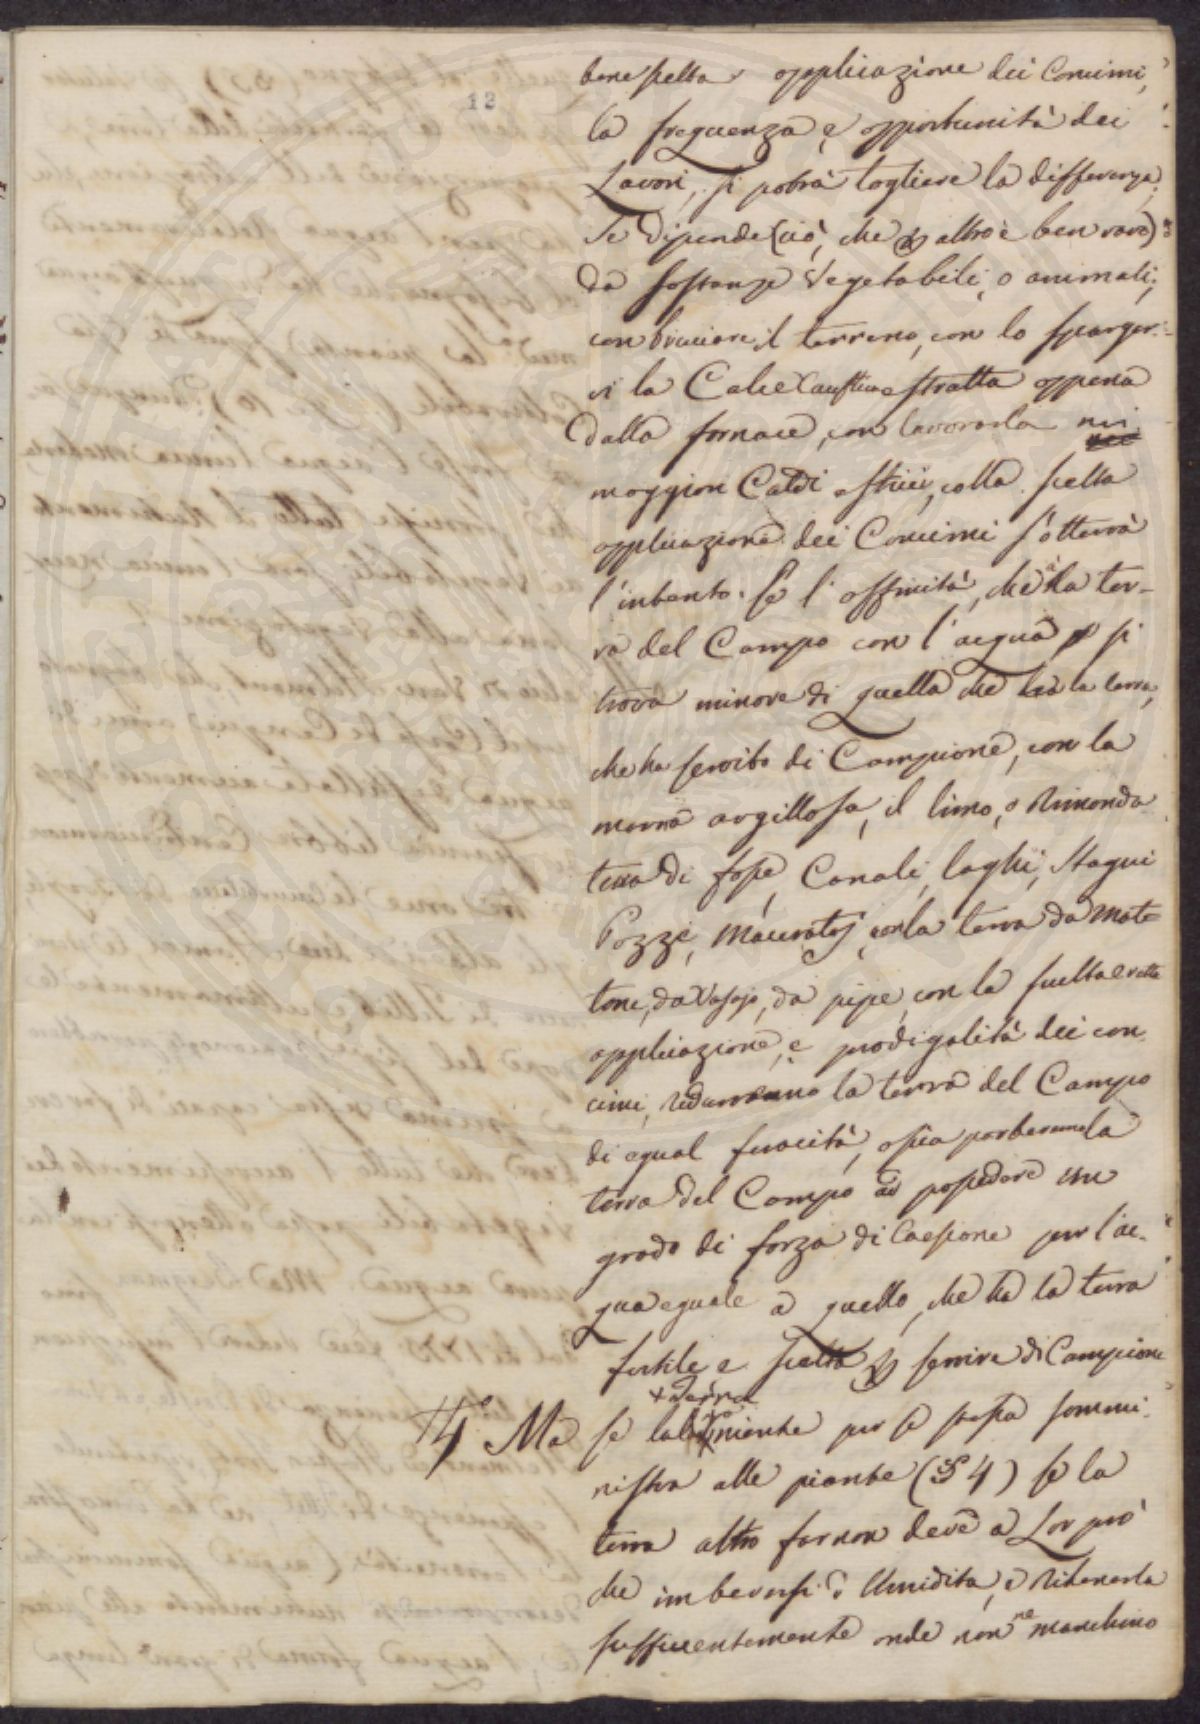 12
bene scelta applicazione dei Concimi,
la frequenza e opportunità dei
Lavori, si potrà togliere la differenza,
Se dipende (ciò, che altro è ben raro)
da sostanze Vegetabili, o animali,
con bruciare il terreno, con lo sparger-
vi la Calce Caustica estratta appena
dalla fornace, con lavorarla nei
maggiori Caldi estivi, colla scelta
applicazione dei Concimi s'otterrà
l'intento. Se l'affinità, che ha la ter-
ra del Campo con l'acqua si
trova minore di quella che ha la terra,
che ha servito di Campione, con la
marna argillosa, il limo, o Rimonda
terra di fosse, Canali, laghi, Stagni
Pozze, Maceratoj, con la terra da Mat-
tone, da Vasajo, da pipe, con la scelta e retta
applicazione, e prodigalità dei con-
cimi, ridurranno la terra del Campo
di egual feracità, ossia porteranno la
terra del Campo a possedere un
grado di forza di Coesione per l'ac-
qua eguale a quello, che ha la terra
fertile e scelta servire di Campione
14° Ma se la terra niente per se stessa sommi-
nistra alle piante (§ 4) se la
terra altro far non deve a Lor prò
che imbeversi d'Umidità, e Ritenerla
sufficentemente onde non ne manchino